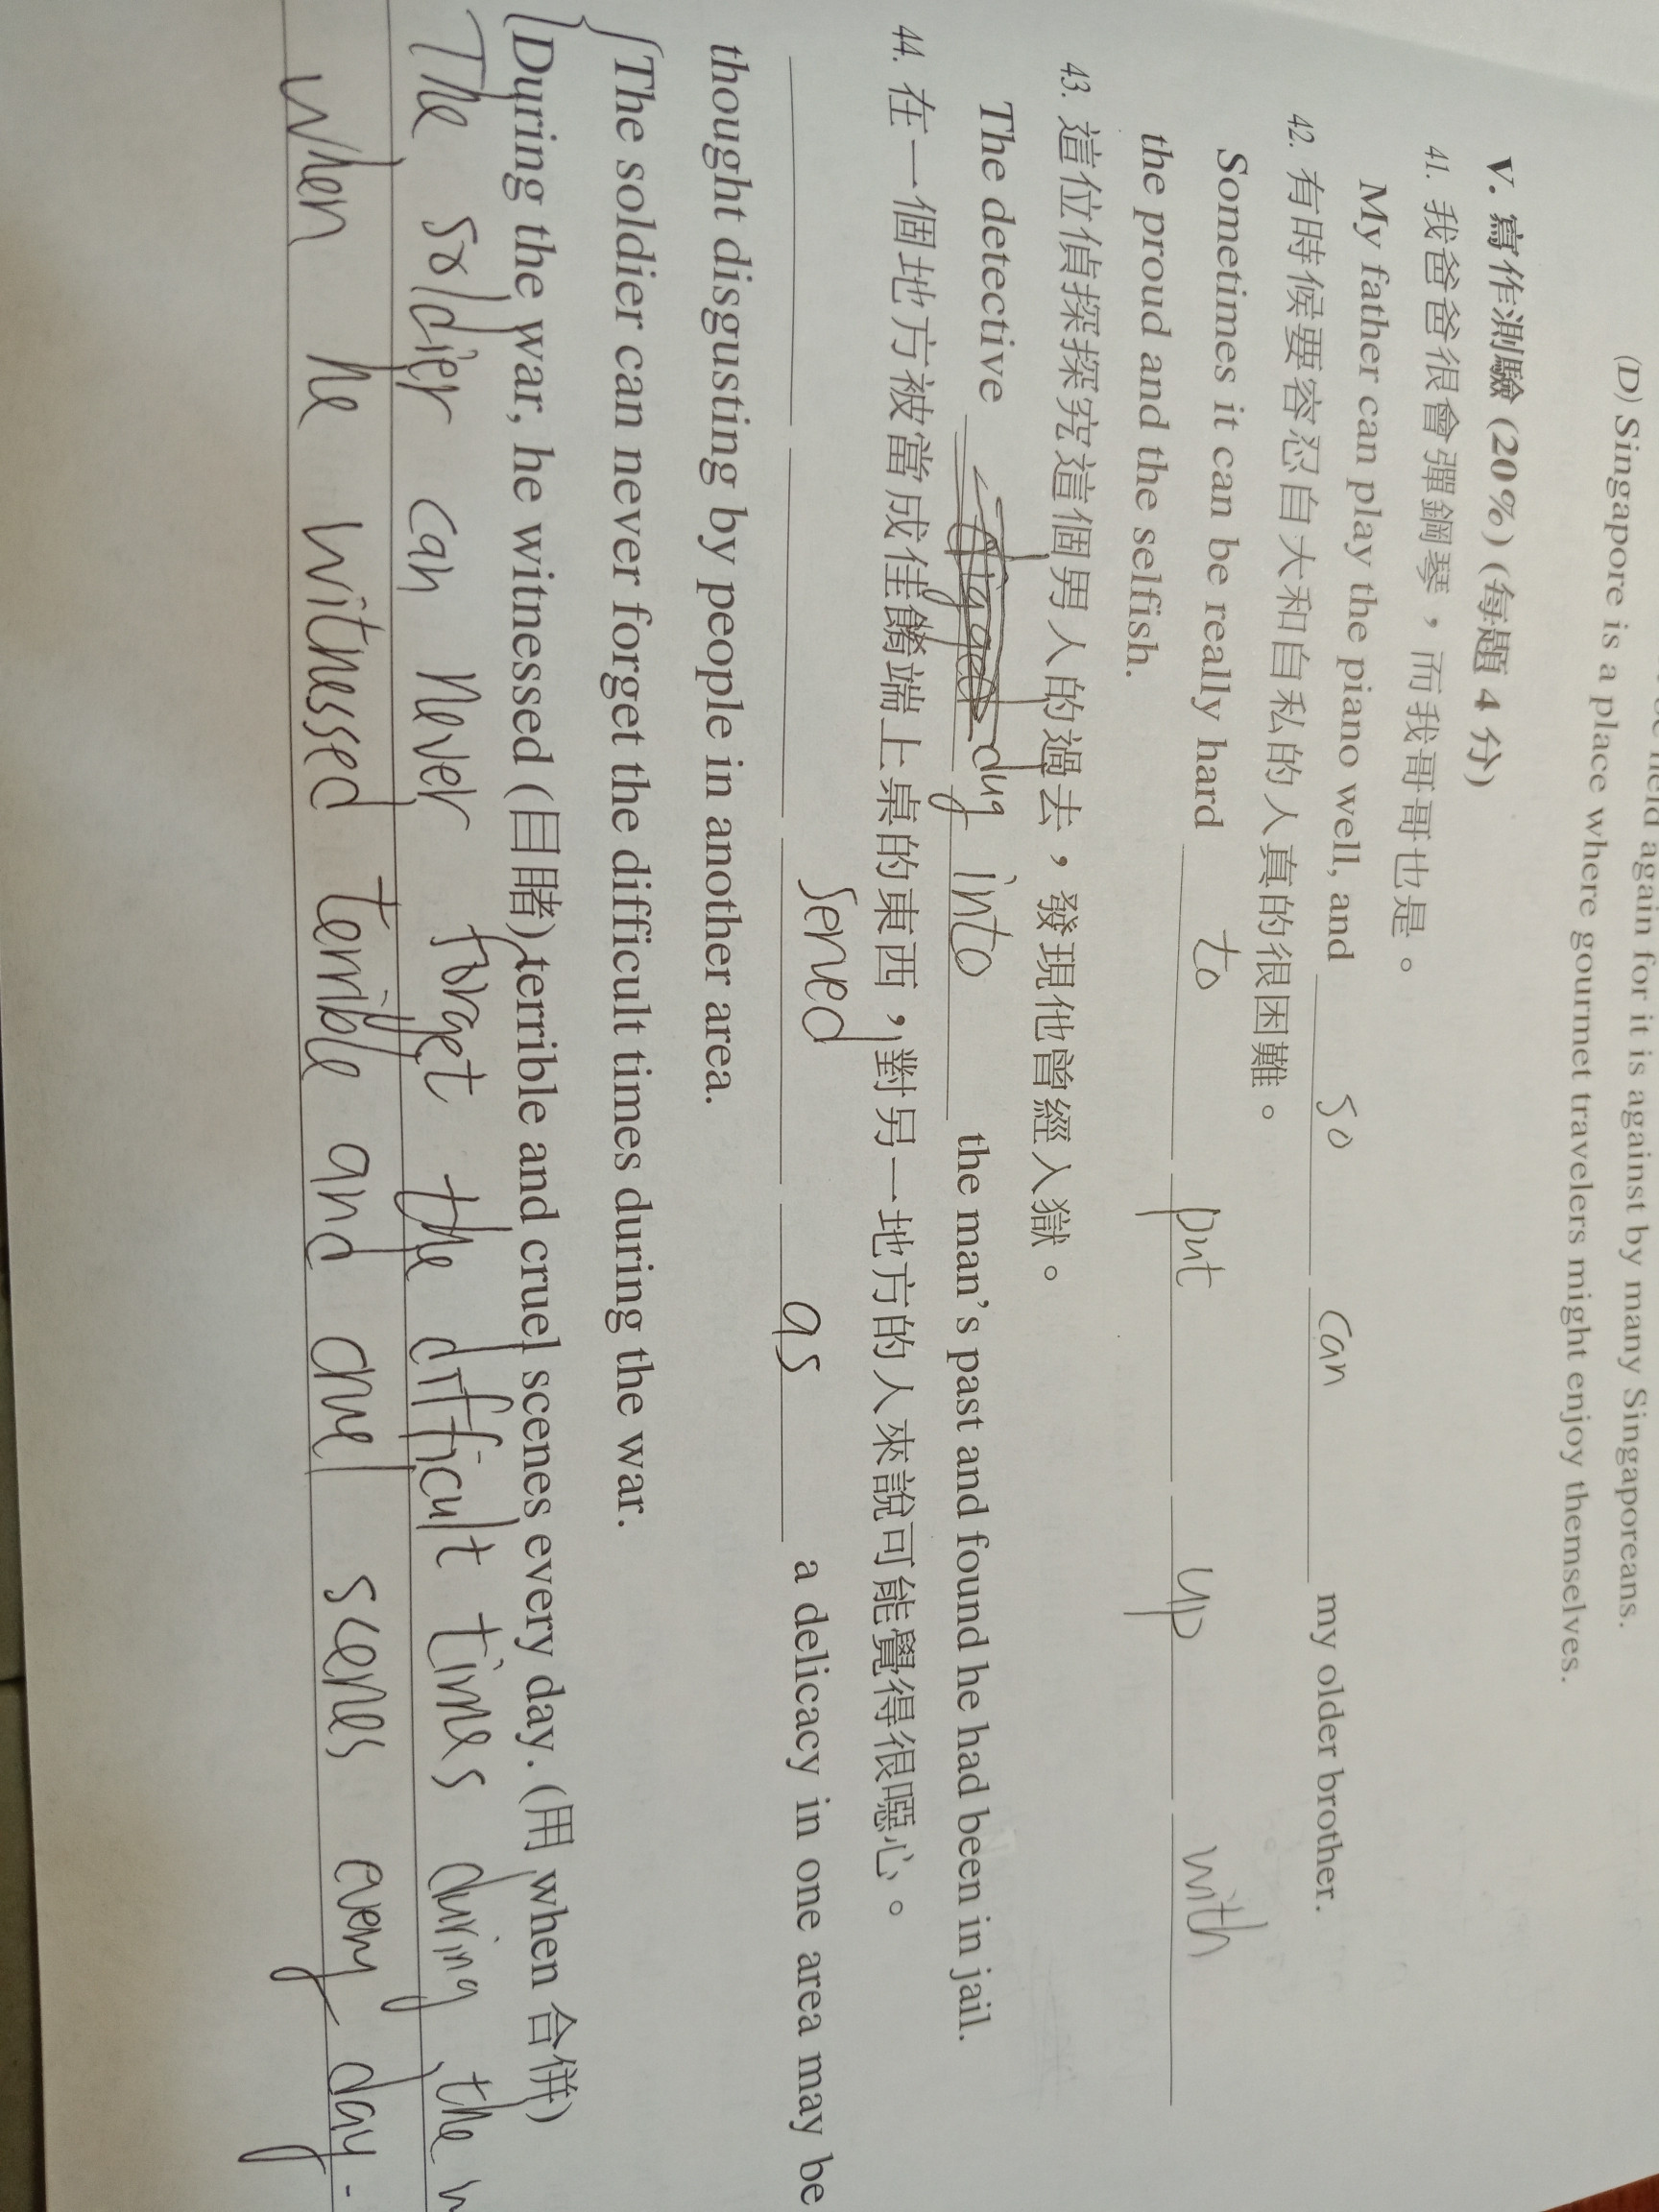 again for it is against by many Singaporeans.
(D) Singapore is a place where gourmet travelers might enjoy themselves.
V. 寫作測驗 (20%) (每題 4 分)
41. 我爸爸很會彈鋼琴，而我哥哥也是。
My father can play the piano well, and so can my older brother.
42. 有時候要容忍自大和自私的人真的很困難。
Sometimes it can be really hard to put up with
the proud and the selfish.
43. 這位偵探探究這個男人的過去，發現他曾經入獄。
The detective dug into the man's past and found he had been in jail.
44. 在一個地方被當成佳餚端上桌的東西，對另一地方的人來說可能覺得很噁心。
served as a delicacy in one area may be
thought disgusting by people in another area.
The soldier can never forget the difficult times during the war.
During the war, he witnessed (目睹) terrible and cruel scenes every day. (用 when 合併)
The soldier can never forget the difficult times during the
when he witnessed terrible and cruel scenes every day.